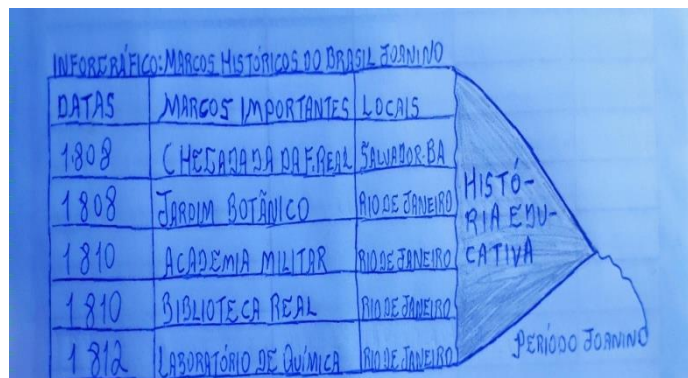 INFORGRÁFICO: MARCOS HISTÓRICOS DO BRASIL JOANINO
DATAS MARCOS IMPORTANTES LOCAIS
1808 CHEGADADA DA F. REAL SALVADOR-BA
1808 JARDIM BOTÂNICO RIO DE JANEIRO
1810 ACADEMIA MILITAR RIO DE JANEIRO
1810 BIBLIOTECA REAL RIO DE JANEIRO
1812 LABORATÓRIO DE QUÍMICA RIO DE JANEIRO
HISTÓ-
RIA EDU-
CATIVA
PERÍODO JOANINO